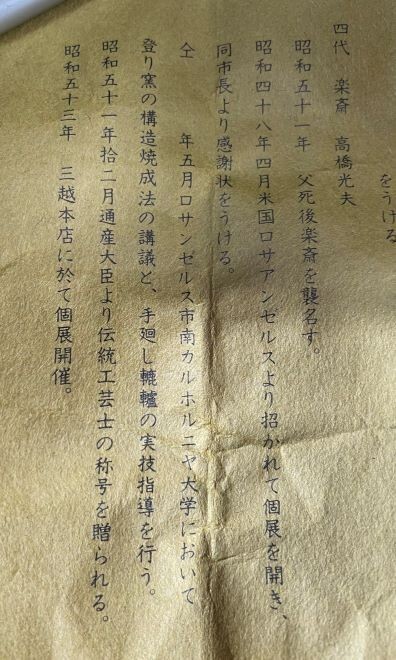 をうける
四代　楽斎　高橋光夫
昭和五十一年　父死後楽斎を襲名す。
昭和四十八年四月米国ロサアンゼルスより招かれて個展を開き、
同市長より感謝状をうける。
仝　年五月ロサンゼルス市南カルホルニヤ大学において
登り窯の構造焼成法の講議と、手廻し轆轤の実技指導を行う。
昭和五十一年拾二月通産大臣より伝統工芸士の称号を贈られる。
昭和五十三年　三越本店に於て個展開催。